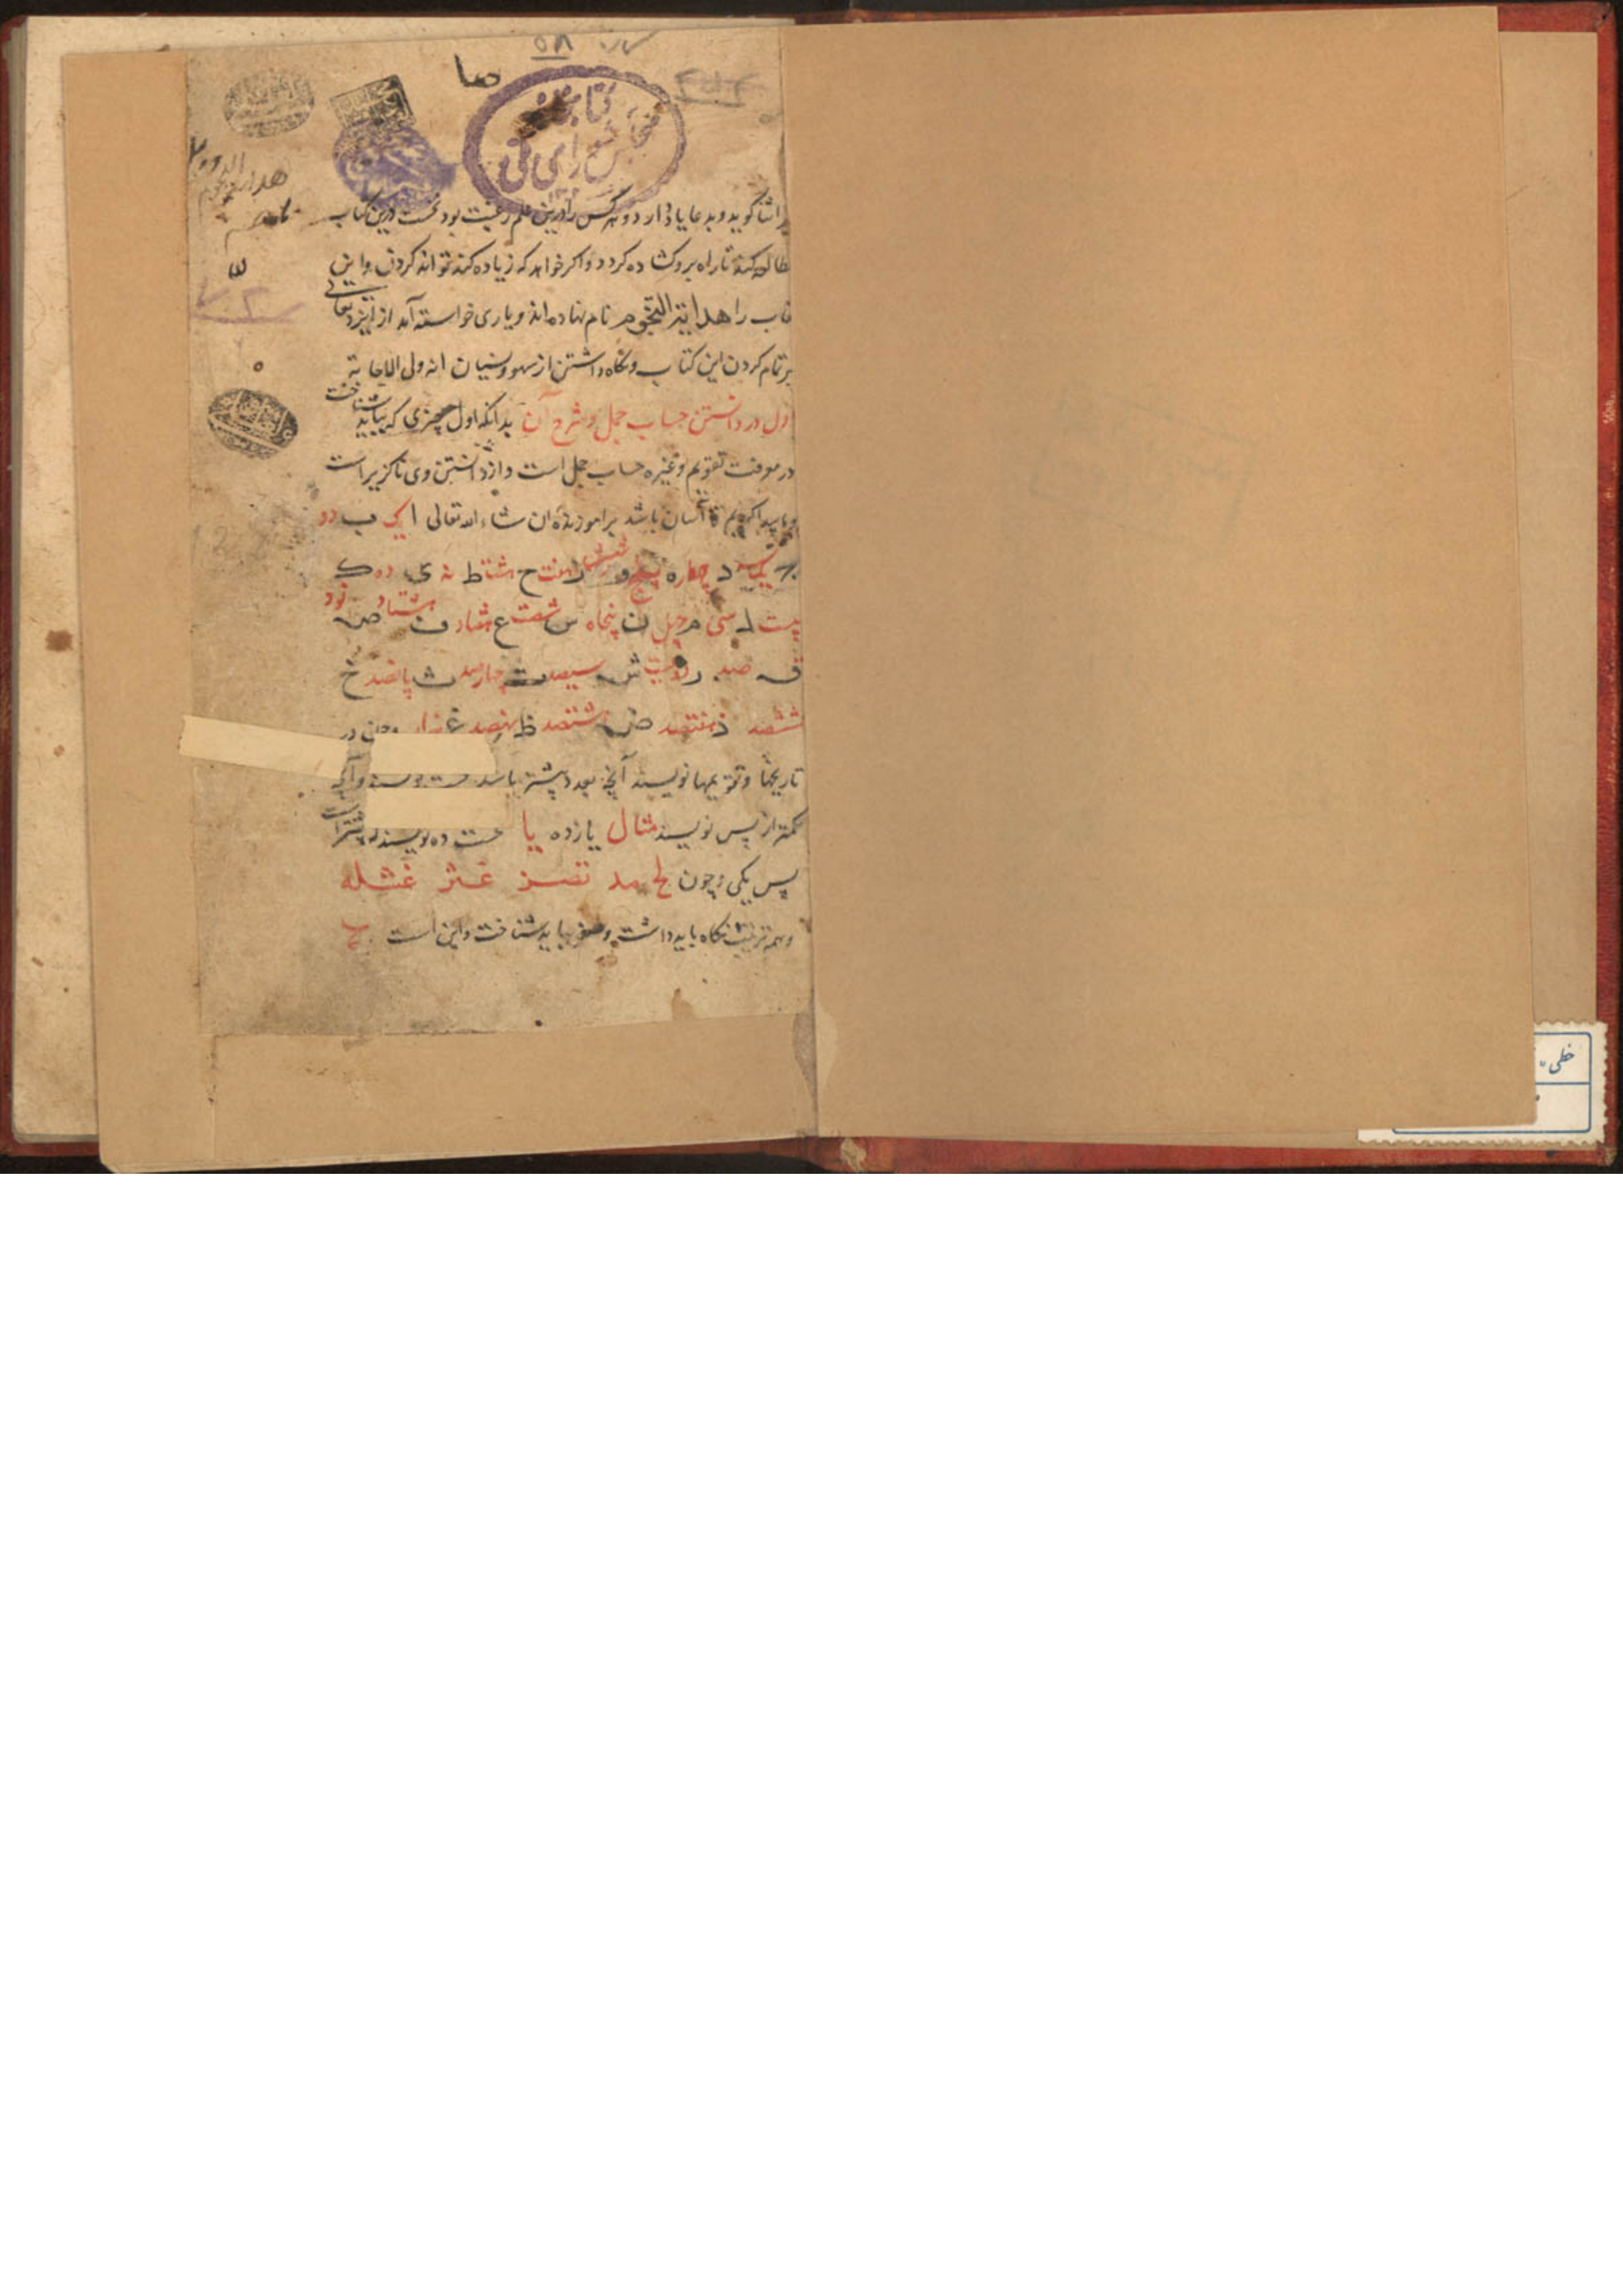 ۵۸
صا
کتابخانه
مجلس شورای ملی
ثنا کوید و بدعا یاد دارد و هر کس را درین علم رغبت بود نخست درین کتاب
مطالعه کند تا راه برو کشاده کردد و اکر خواهد که زیاده کند تواند کردن و این
کتاب را هدایة النجوم نام نهاده اند و یاری خواسته آمد از ایزد تعالی
بر تمام کردن این کتاب و نکاه داشتن از سهو و نسیان انه ولی الاجابة
اول در دانستن حساب جمل و شرح آن بدانکه اول چیزی که بباید شناخت
در معرفت تقویم و غیره حساب جمل است و از دانستن وی ناکزیر است
پیدا کردیم تا آسان باشد بر آموزنده ان شاء الله تعالی ا یک ب دو
ج سه د چهار ه پنج و شش ز هفت ح هشت ط نه ی ده ک
بیست ل سی م چهل ن پنجاه س شصت ع هفتاد ف هشتاد ص نود
ق صد ر دویست ش سیصد ت چهارصد ث پانصد خ
ششصد ذ هفتصد ض هشتصد ظ نهصد غ هزار و چون در
تاریخها و تقویمها نویسند آنچ بعدد بیشتر باشد نخست نویسند و آنچ
کمتر از پس نویسند مثال یازده یا نخست ده نویسند که بیشتر است
پس یکی و چون لح مد تصز غثز غشله
و همه ترتیب نکاه باید داشت و صفر بباید شناخت و این است
خطی